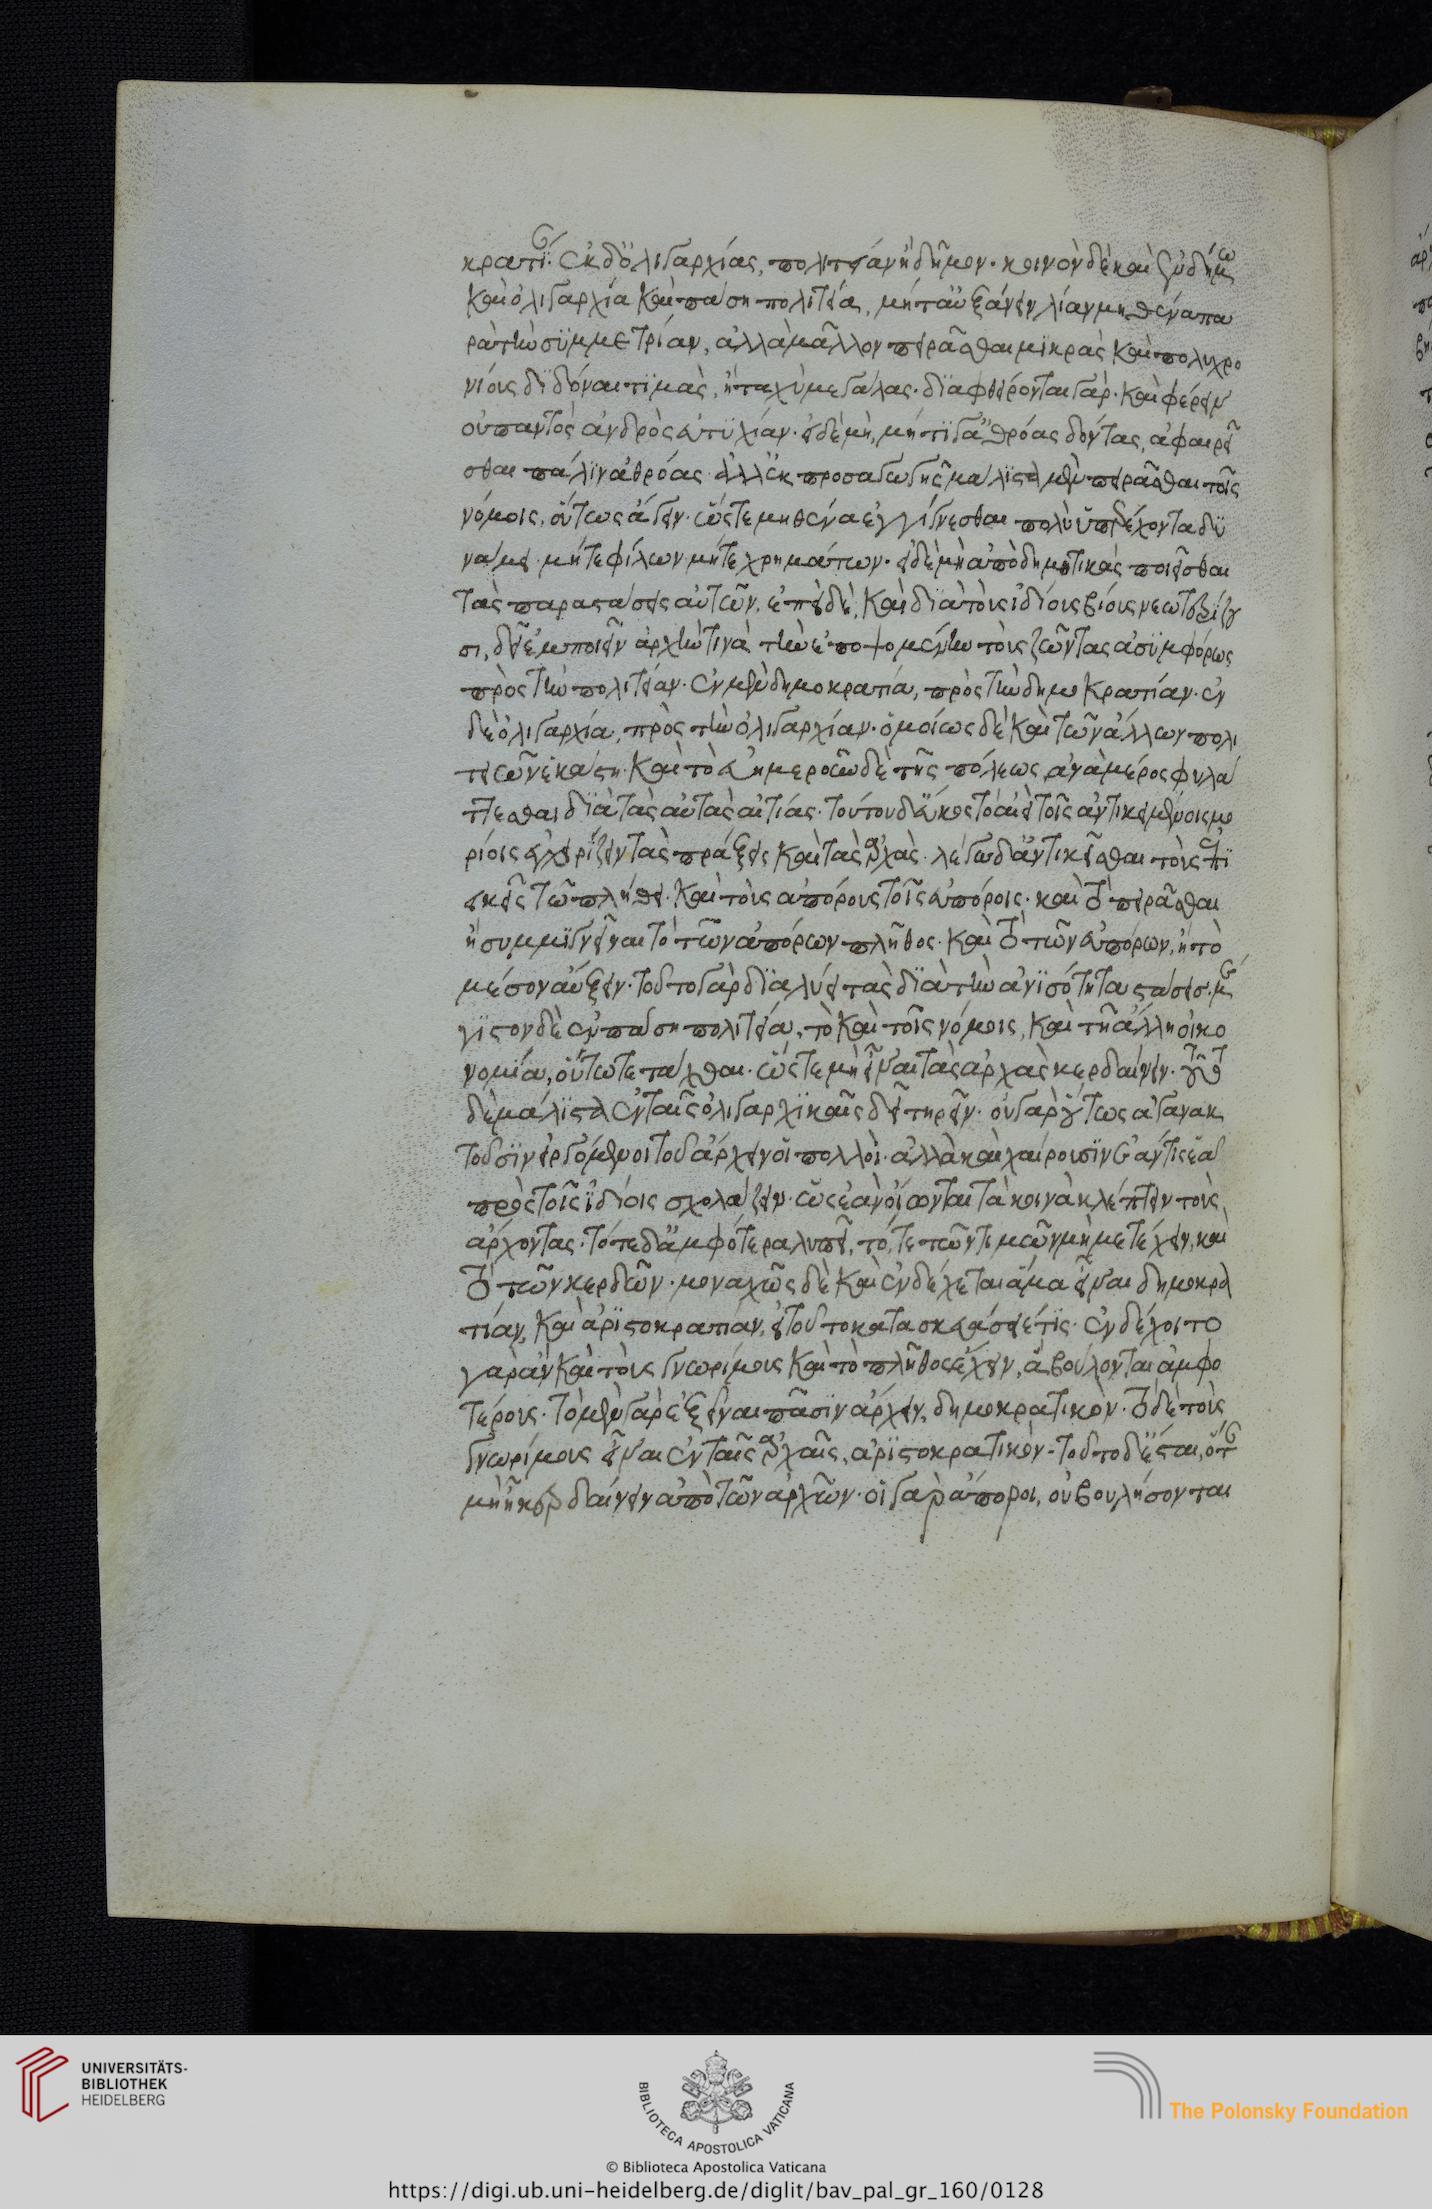 κρατί. ἐκ δ' ὀλιγαρχίας, πολιτείαν ἢ δῆμον. κοινὸν δὲ καὶ ἐν δήμω
καὶ ὀλιγαρχία καὶ πάση πολιτεία, μήτ' αὐξάνειν λίαν μηθένα πα
ρὰ τὴν συμμετρίαν, ἀλλὰ μᾶλλον πειρᾶσθαι μικρὰς καὶ πολυχρο
νίους διδόναι τιμὰς, ἢ ταχὺ μεγάλας. διαφθείρονται γάρ. καὶ φέρειν
οὐ παντὸς ἀνδρὸς εὐτυχίαν. εἰ δὲ μὴ, μήτι γ' ἀθρόας δόντας, ἀφαιρεῖ
σθαι πάλιν ἀθρόας ἀλλ' ἐκ προσαγωγῆς μάλιστα μὲν πειρᾶσθαι τοῖς
νόμοις, οὕτως ἄγειν. ὥστε μηθένα ἐγγίγνεσθαι πολὺ ὑπερέχοντα δυ
νάμει μήτε φίλων μήτε χρημάτων. εἰ δὲ μὴ ἀποδημητικὰς ποιεῖσθαι
τὰς παραστάσεις αὐτῶν. ἐπεὶ δὲ, καὶ διὰ τοὺς ἰδίους βίους νεωτερίζου
σι, δεῖ ἐμποιεῖν ἀρχήν τινα τὴν ἐποψομένην τοὺς ζῶντας ἀσυμφόρως
πρὸς τὴν πολιτείαν. ἐν μὲν δημοκρατία, πρὸς τὴν δημοκρατίαν. ἐν
δὲ ὀλιγαρχία, πρὸς τὴν ὀλιγαρχίαν. ὁμοίως δὲ καὶ τῶν ἄλλων πολι
τειῶν ἑκάστη. καὶ τὸ εὐημεροῦν δὲ τῆς πόλεως ἀνὰ μέρος φυλά
ττεσθαι διὰ τὰς αὐτὰς αἰτίας. τούτου δ' ἄκος τὸ αἰεὶ τοῖς ἀντικειμένοις μο
ρίοις ἐγχειρίζειν τὰς πράξεις καὶ τὰς ἀρχάς. λέγω δ' ἀντικεῖσθαι τοὺς ἐπι
εικεῖς τῶ πλήθει. καὶ τοὺς ἀπόρους τοῖς εὐπόροις. καὶ τὸ πειρᾶσθαι
ἢ συμμιγνεῖναι τὸ τῶν ἀπόρων πλῆθος. καὶ τὸ τῶν εὐπόρων, ἢ τὸ
μέσον αὔξειν. τοῦτο γὰρ διαλύει τὰς διὰ τὴν ἀνισότητα στάσεις. μέ
γιστον δὲ ἐν πάση πολιτεία, τὸ καὶ τοῖς νόμοις, καὶ τῆ ἄλλη οἰκο
νομία, οὕτω τετάχθαι. ὥστε μὴ εἶναι τὰς ἀρχὰς κερδαίνειν. τοῦτο
δὲ μάλιστα ἐν ταῖς ὀλιγαρχικαῖς δεῖ τηρεῖν. οὐ γὰρ οὕτως ἀγανακ
τοῦσιν εἰργόμενοι τοῦ ἄρχειν οἱ πολλοὶ. ἀλλὰ καὶ χαίρουσιν ἐάν τις ἐᾶ
πρὸς τοῖς ἰδίοις σχολάζειν. ὡς ἐὰν οἴωνται τὰ κοινὰ κλέπτειν τοὺς
ἄρχοντας. τότε δ' ἀμφότερα λυπεῖ, τό, τε τῶν τιμῶν μὴ μετέχειν, καὶ
τὸ τῶν κερδῶν. μοναχῶς δὲ καὶ ἐνδέχεται ἅμα εἶναι δημοκρα
τίαν, καὶ ἀριστοκρατίαν, εἰ τοῦτο κατασκευάσειέ τις. ἐνδέχοιτο
γὰρ ἂν καὶ τοὺς γνωρίμους καὶ τὸ πλῆθος ἔχειν, ἃ βούλονται ἀμφο
τέρους. τὸ μὲν γὰρ ἐξεῖναι πᾶσιν ἄρχειν, δημοκρατικὸν. τὸ δὲ τοὺς
γνωρίμους εἶναι ἐν ταῖς ἀρχαῖς, ἀριστοκρατικόν. τοῦτο δ' ἔσται, ὅτε
μὴ ἦ κερδαίνειν ἀπὸ τῶν ἀρχῶν. οἱ γὰρ ἄποροι, οὐ βουλήσονται
UNIVERSITÄTS-
BIBLIOTHEK
HEIDELBERG
BIBLIOTECA APOSTOLICA VATICANA
The Polonsky Foundation
© Biblioteca Apostolica Vaticana
https://digi.ub.uni-heidelberg.de/diglit/bav_pal_gr_160/0128